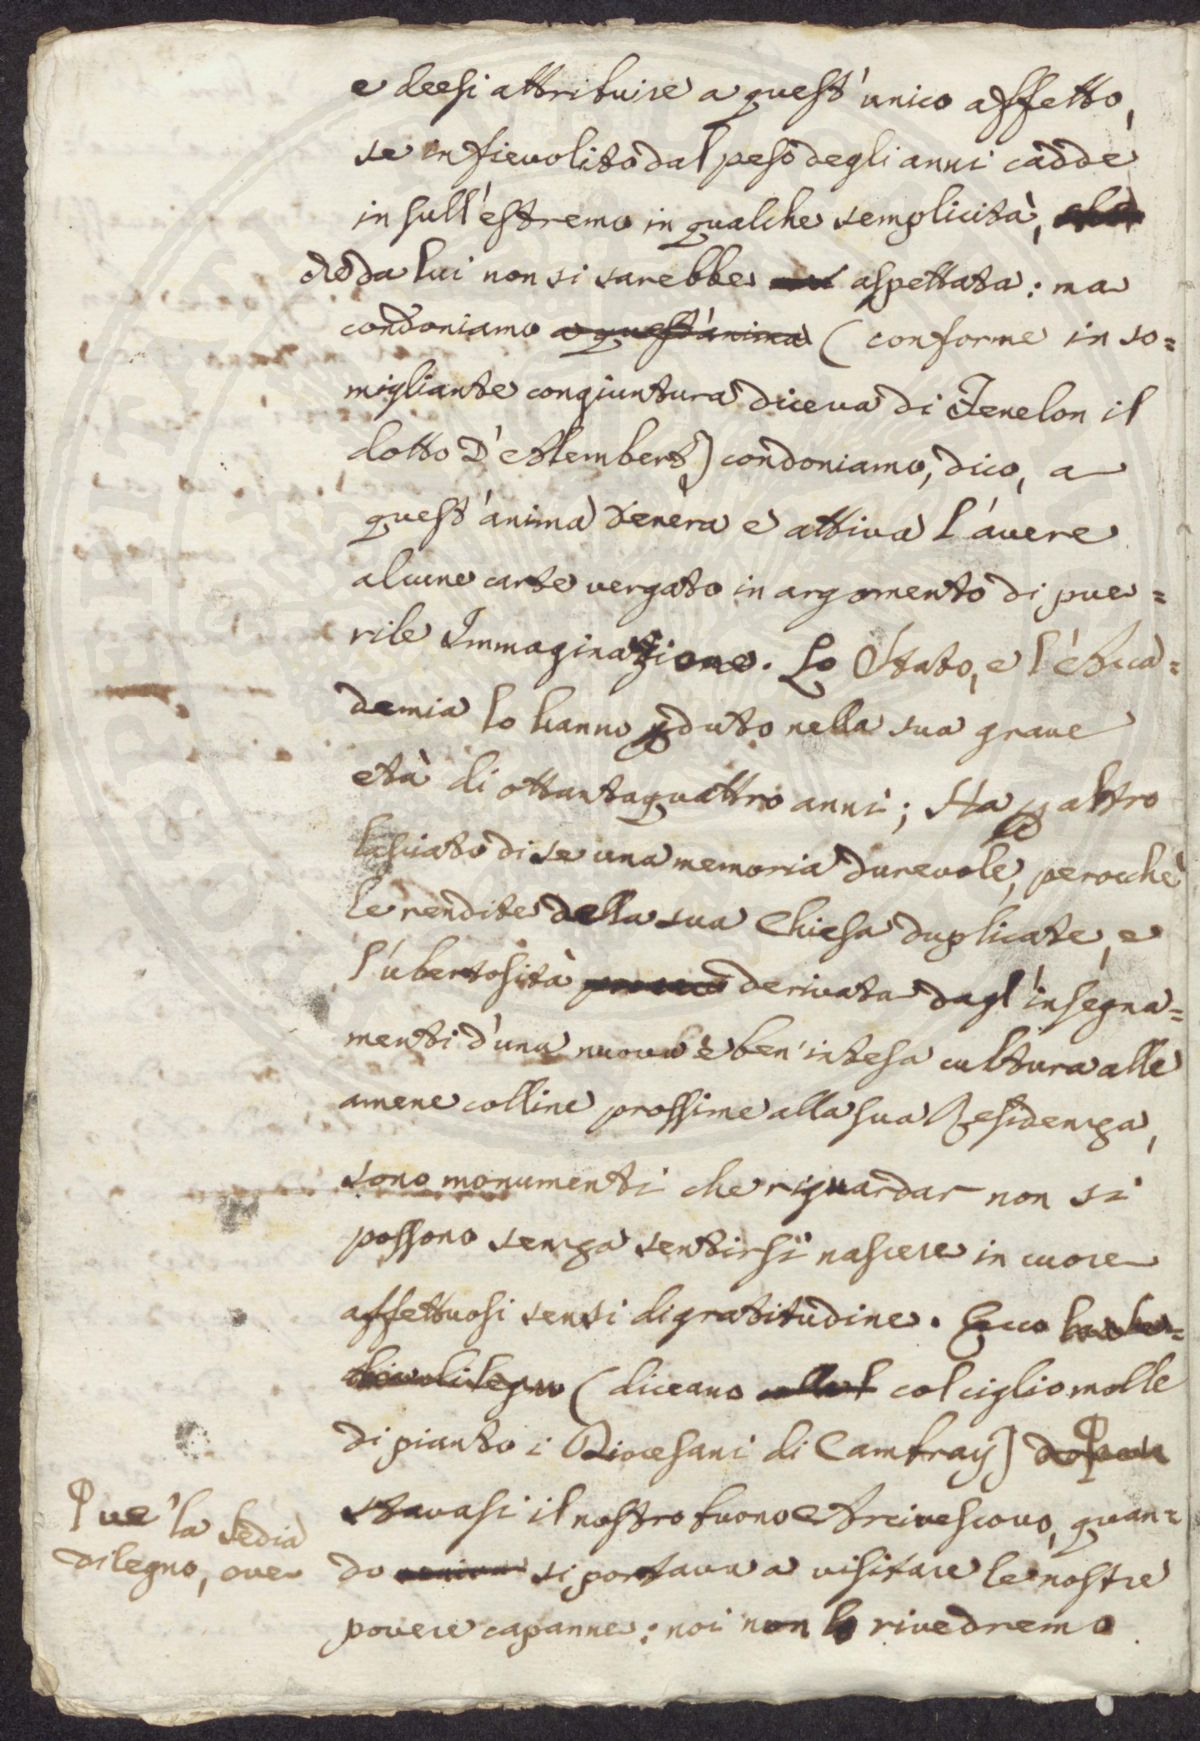 e deesi attribuire a quest'unico affetto,
se infievolito dal peso degli anni cadde
in sull'estremo in qualche semplicità,
che da lui non si sarebbe aspettata: ma
condoniamo a quest'anima (conforme in so=
migliante congiuntura diceva di Fenelon il
dotto D'Alembert) condoniamo, dico, a
quest'anima tenera e attiva l'avere
alcune carte vergato in argomento di pue=
rile Immaginazione. Lo Stato, e l'Acca=
demia lo hanno pduto nella sua grave
età di ottantaquattro anni; Ha p altro
lasciato di se una memoria durevole, perocchè
le rendite della sua Chiesa duplicate, e
l'ubertosità derivata dagl'insegna=
menti d'una nuova e ben'intesa cultura alle
amene colline prossime alla sua Residenza,
sono monumenti che riguardar non si
possono senza sentirsi nascere in cuore
affettuosi sensi di gratitudine. Ecco
(diceano col ciglio molle
di pianto i Diocesani di Cambray)
stavasi il nostro buono Arcivescovo, quan=
do si portava a visitare le nostre
povere capanne: noi non lo rivedremo
ve' la sedia
di legno, ove